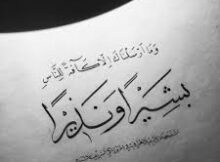 وَمَا أَرْسَلْنَاكَ إِلَّا كَافَّةً لِّلنَّاسِ
بَشِيرًا وَنَذِيرًا